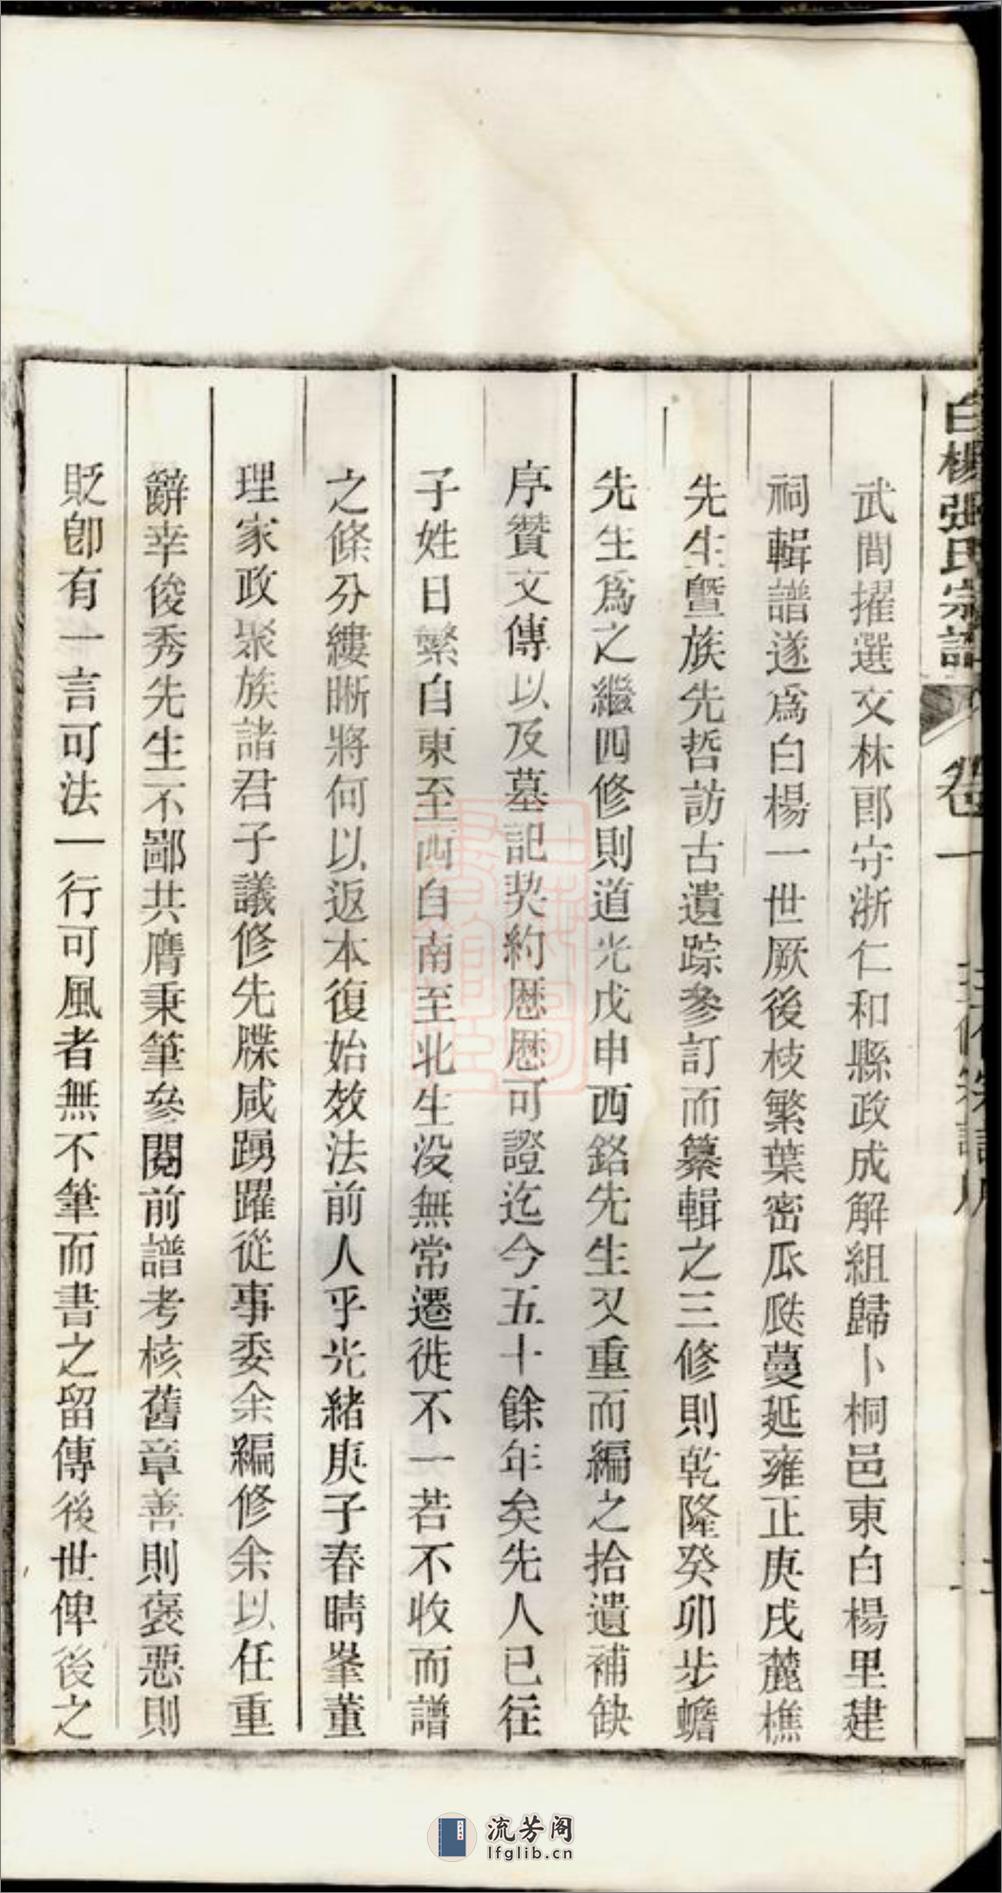 白楊張氏宗譜 卷一
武間擢選文林郎守浙仁和縣政成解組歸卜桐邑東白楊里建
祠輯譜遂爲白楊一世厥後枝繁葉密瓜瓞蔓延雍正庚戌麓樵
先生曁族先哲訪古遺踪參訂而纂輯之三修則乾隆癸卯步蟾
先生爲之繼四修則道光戊申西銘先生又重而編之拾遺補缺
序贊文傳以及墓記契約歷歷可證迄今五十餘年矣先人已往
子姓日繁自東至西自南至北生没無常遷徙不一若不收而譜
之條分縷晰將何以返本復始效法前人乎光緒庚子春晴峯董
理家政聚族諸君子議修先牒咸踴躍從事委余編修余以任重
辭幸俊秀先生不鄙共膺秉筆參閱前譜考核舊章善則褒惡則
貶卽有一言可法一行可風者無不筆而書之留傳後世俾後之
流芳阁
lfglib.cn